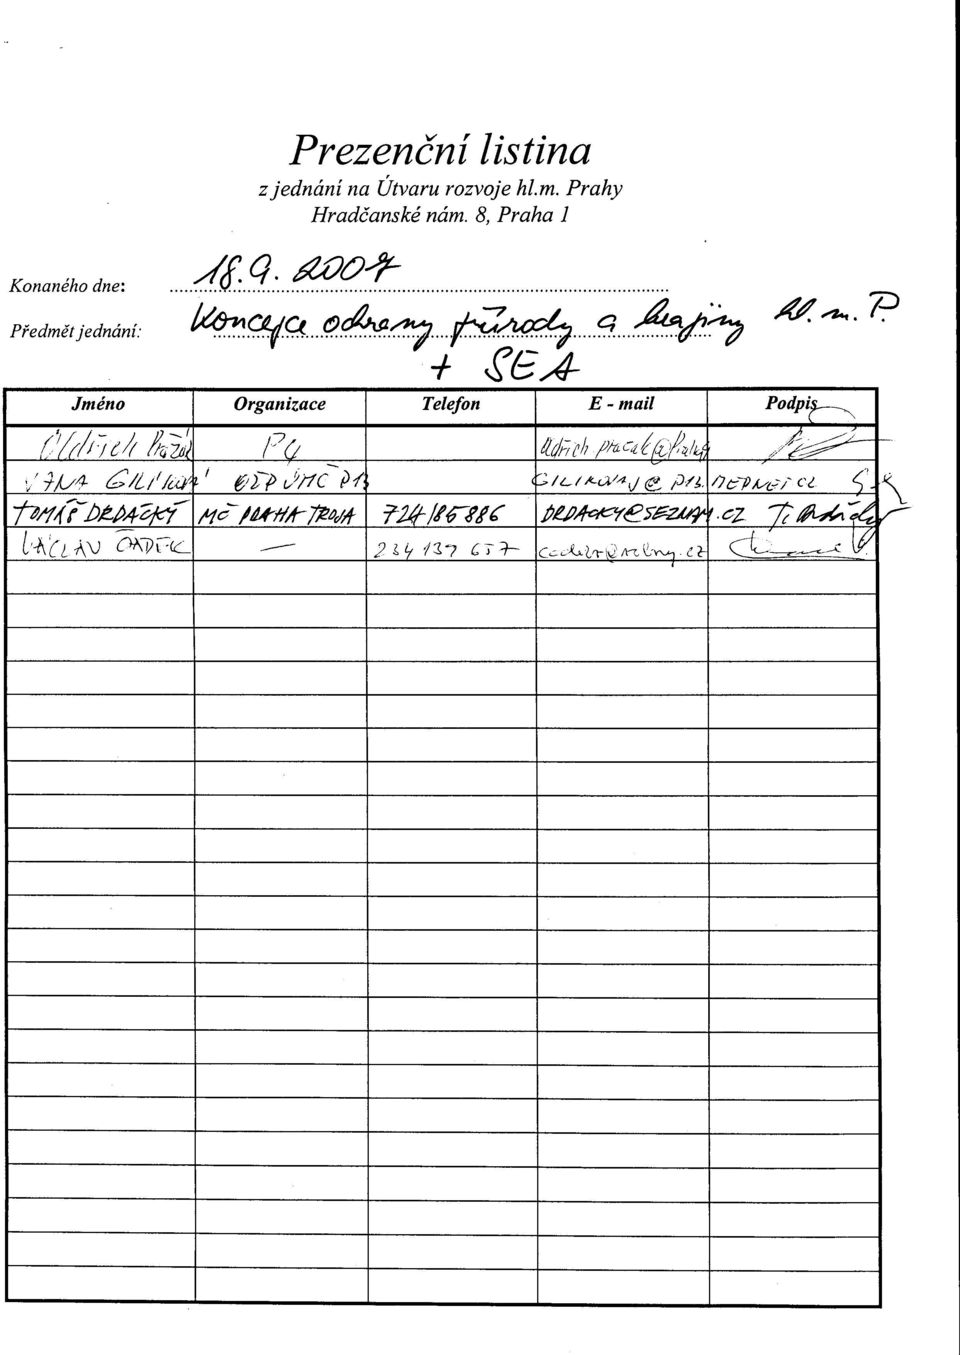 Prezenční listina
z jednání na Útvaru rozvoje hl.m. Prahy
Hradčanské nám. 8, Praha 1
Konaného dne: 18.9. 2007
Předmět jednání: Koncepce ochrany přírody a krajiny hl. m. P.
+ SEA
Jméno Organizace Telefon E - mail Podpis
Oldřich P4
JANA GILÍKOVÁ OŽP ÚMČ P13
TOMÁŠ DRDÁCKÝ MČ PRAHA TROJA 724 185 886 DRDACKY@SEZNAM.CZ
VÁCLAV ČADEK — 234 139 657